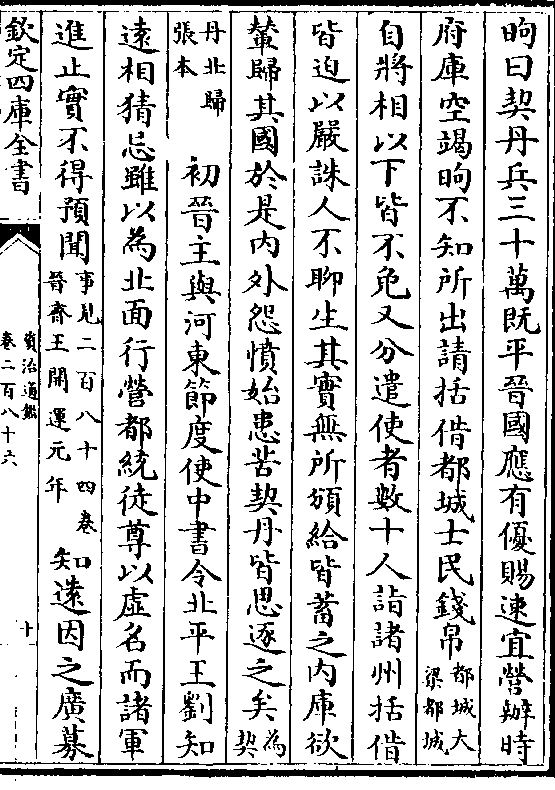 昫曰契丹兵三十萬既平晉國應有優賜速宜營辦時
府庫空竭昫不知所出請括借都城士民錢帛都城大梁都城
自將相以下皆不免又分遣使者數十人詣諸州括借
皆迫以嚴誅人不聊生其實無所頒給皆蓄之内庫欲
輦歸其國於是内外怨憤始患苦契丹皆思逐之矣為契
丹北歸張本
初晉主與河東節度使中書令北平王劉知
遠相猜忌雖以為北面行營都統徒尊以虚名而諸軍
進止實不得預聞事見二百八十四卷晉齊王開運元年知遠因之廣募
欽定四庫全書
資治通鑑
卷二百八十六
十